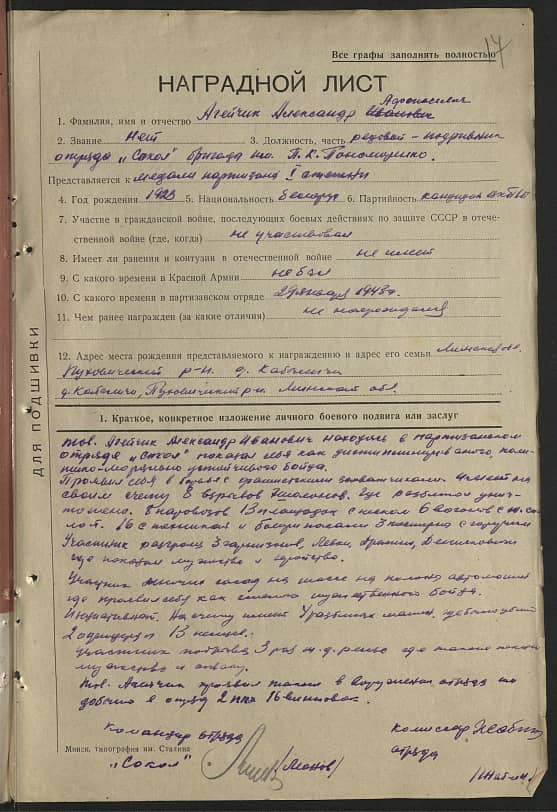 17
Все графы заполнять полностью
НАГРАДНОЙ ЛИСТ
Афанасьевич
1. Фамилия, имя и отчество Агейчик Александр Иванович
2. Звание Нет 3. Должность, часть рядовой - подрывник
отряда "Сокол" бригада им. П. К. Пономаренко.
Представляется к медали партизана I степени
4. Год рождения 1923 5. Национальность белорус 6. Партийность кандидат
7. Участие в гражданской войне, последующих боевых действиях по защите СССР в отече-
ственной войне (где, когда) не участвовал
8. Имеет ли ранения и контузии в отечественной войне не имеет
9. С какого времени в Красной Армии не был
10. С какого времени в партизанском отряде января 1943 г.
11. Чем ранее награжден (за какие отличия) не награждался
12. Адрес места рождения представляемого к награждению и адрес его семьи Минская обл.
Пуховичский р-н. д.
д. Пуховичский р-н Минской обл.
ДЛЯ ПОДШИВКИ
1. Краткое, конкретное изложение личного боевого подвига или заслуг
тов. Агейчик Александр Иванович находясь в партизанском
отряде "Сокол" показал себя как дисциплинированого, поли-
тико-морально устойчивого бойца.
Проявил себя в борьбе с фашистскими захватчиками. имеет на
своем счету 8 взрывов эшелонов. Где разбито и унич-
тожено. 8 паровозов 13 площадок с песком 6 вагонов с
16 с техникой и боеприпасами 3 цистерны с горючим
Участник разгрома 3 гарнизонов,
где показал мужество и геройство.
Участник многих засад на шоссе на колоны автомашин
где проявил себя как смелого мужественного бойца.
Инициативной. На счету имеет
2 офицера и 13 немцев.
Участник подрыва 3 раз ж. д. рельс где также показал
мужество и отвагу.
Тов. Агейчик проявил также в вооружении отряда он
добыл в отряд 2 16 винтовок.
Командир отряда
"Сокол"
Комиссар
отряда
Минск, типография им. Сталина